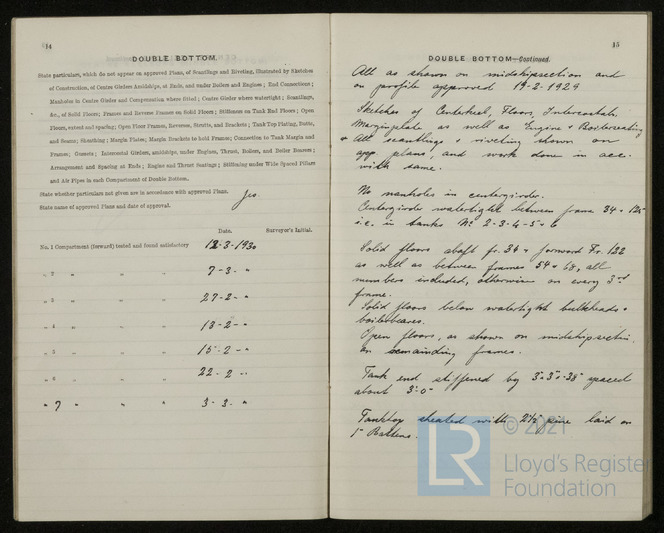 14
DOUBLE BOTTOM.
State particulars, which do not appear on approved Plans, of Scantlings and Riveting, illustrated by Sketches
of Construction, of Centre Girders Amidships, at Ends, and under Boilers and Engines; End Connections;
Manholes in Centre Girder and Compensation where fitted; Centre Girder where watertight; Scantlings,
&c., of Solid Floors; Frames and Reverse Frames on Solid Floors; Stiffeners on Tank End Floors; Open
Floors, extent and spacing; Open Floor Frames, Reverses, Struts, and Brackets; Tank Top Plating, Butts,
and Seams; Sheathing; Margin Plates; Margin Brackets to hold Frames; Connection to Tank Margin and
Frames; Gussets; Intercostal Girders, amidships, under Engines, Thrust, Boilers, and Boiler Bearers;
Arrangement and Spacing at Ends; Engine and Thrust Seatings; Stiffening under Wide Spaced Pillars
and Air Pipes in each Compartment of Double Bottom.
State whether particulars not given are in accordance with approved Plans. Yes.
State name of approved Plans and date of approval.
Date. Surveyor's Initial.
No. 1 Compartment (forward) tested and found satisfactory 12-3-1930
„ 2 „ „ „ 7-3- „
„ 3 „ „ „ 27-2- „
„ 4 „ „ „ 13-2- „
„ 5 „ „ „ 15-2- „
„ 6 „ „ „ 22-2- „
„ 7 „ „ „ 3-3- „
15
DOUBLE BOTTOM—Continued.
All as shown on midshipsection and
on profile approved 19-2-1929
Sketches of Centerkeel, Floors, Intercostals
Marginplate as well as Engine & Boilerseating
All scantlings & riveting shown on
app. plans, and work done in acc.
with same.
No manholes in centergirder.
Centergirder watertight between frame 34 & 125
i.e. in tanks No 2-3-4-5 & 6
Solid floors abaft fr. 34 & forward Fr. 122
as well as between frames 54 & 68, all
numbers included, otherwise on every 3rd
frame.
Solid floors below watertight bulkheads &
boilerbearers.
Open floors, as shown on midshipsection
on remainding frames.
Tank end stiffened by 3" 3" .38" spaced
about 3'-0"
Tanktop sheated with 2½" pine laid on
1" Battens.
© 2021
LR
Lloyd's Register
Foundation